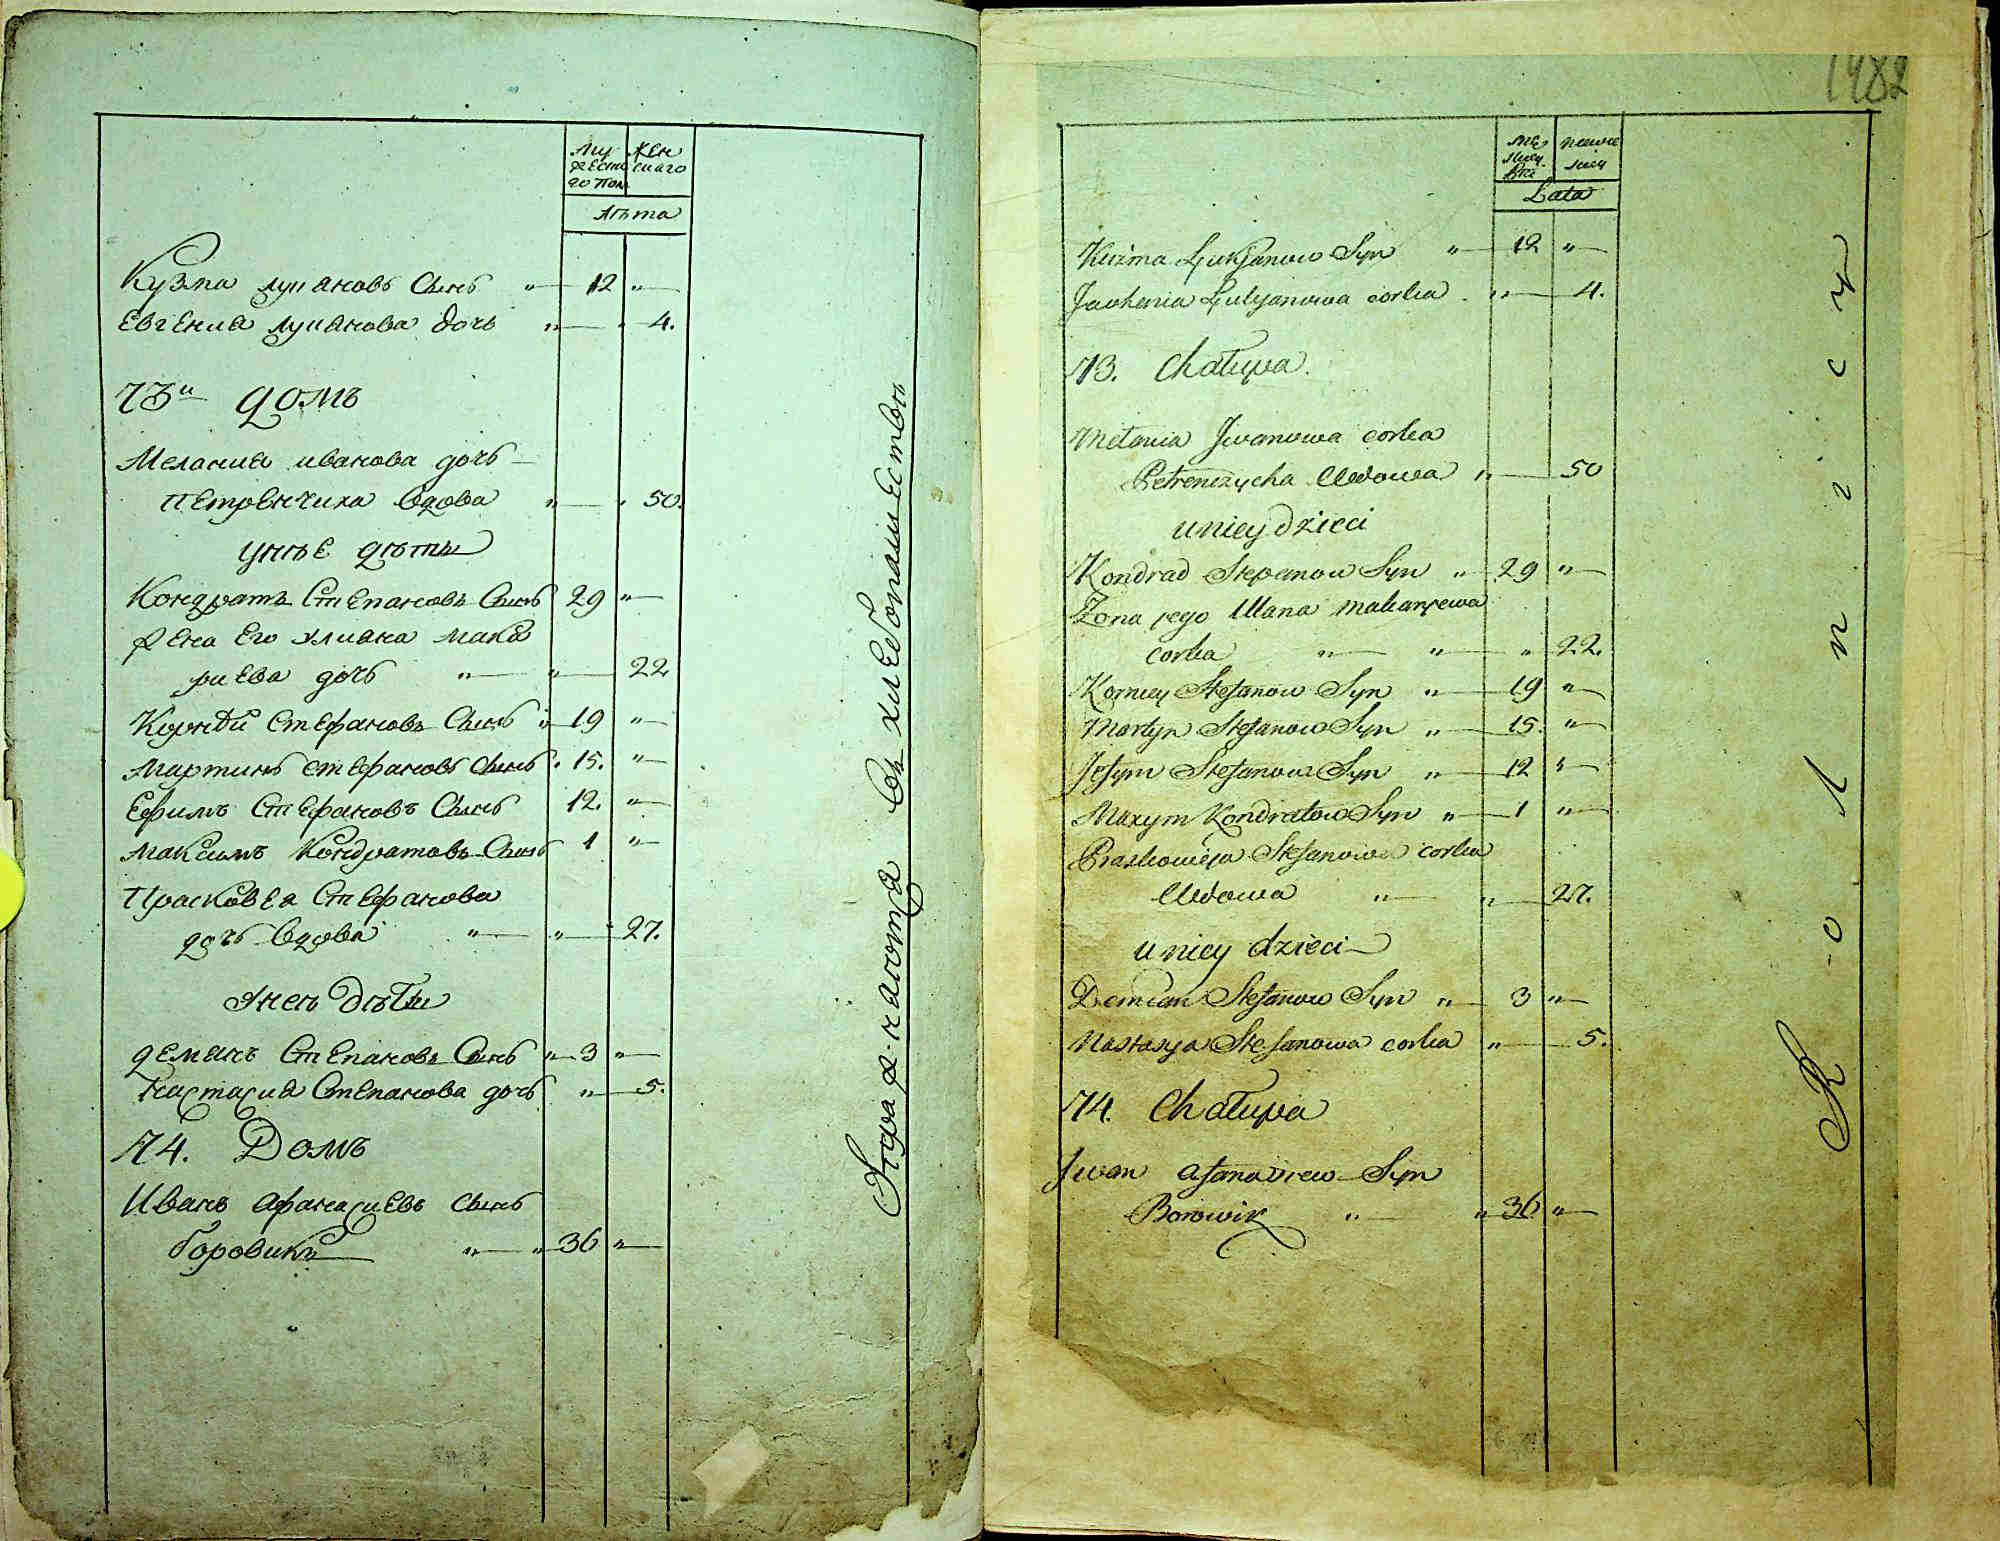 Му Жен
жеска скаго
го пол
лѣта
Кузма лукяновъ Сынъ " 12 "
Евгения лукянова дочь " " 4.
73й домъ
Мелания иванова дочь
Петренчиха вдова " " 50.
унѣе дѣти
Кондратъ Степановъ Сынъ 29 "
жена Его улиана мака
риева дочь " " 22
Корнѣй Стефановъ Сынъ " 19 "
Мартинъ стефановъ Сынъ " 15. "
Ефимъ Стефановъ Сынъ 12. "
Максимъ Кондратовъ Сынъ 1 "
Прасковея Стефанова
дочь вдова " " 27.
унеѣ дѣти
демянъ Степановъ Сынъ " 3 "
Настасия Степанова дочь " 5.
74. Домъ
Иванъ афанасиевъ сынъ
боровикъ " " 36 "
въ хлебопашествѣ
1482
Lata
Kuźma Łukjanow Syn " 12 "
Jawhenia Łukjanowa corka " 4.
73. Chałupa.
Mełania Jwanowa corka
Petrenczycha Wdowa " 50
u niey dzieci
Kondrad Stepanow Syn " 29 "
Zona jego Ulana makarjewa
corka " " " 22.
Korniey Stefanow Syn " 19 "
Martyn Stefanow Syn " 15. "
Jefym Stefanow Syn " 12 "
Maxym Kondratow Syn " 1 "
Praskowieja Stefanowa corka
Wdowa " " 27.
u niey dzieci
Demian Stefanow Syn " 3 "
Nastasya Stefanowa corka " 5.
74. Chałupa
Jwan afanasiew Syn
Borowik " " 36 "
R o l n i c y